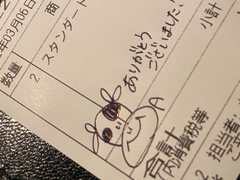 年03月06日
商
小計
数量
2
スタンダード
ありがとう
ございました!
A
合計
内消費税等
2
担当者